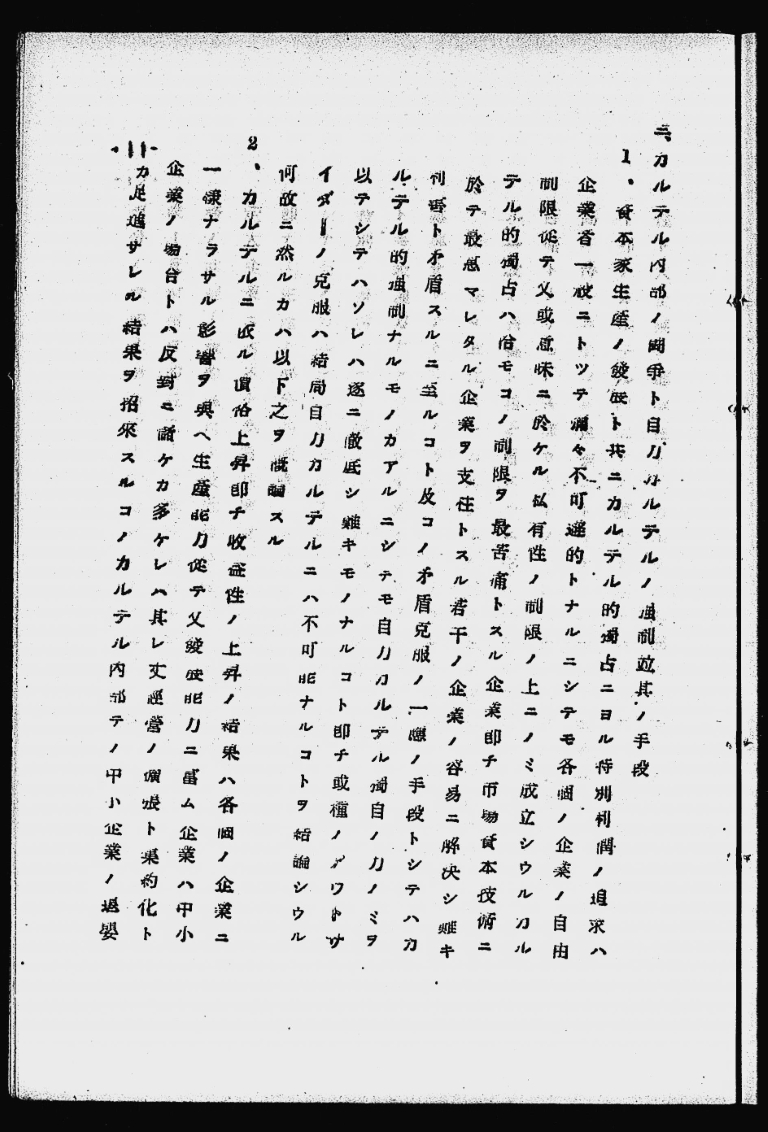 二、カルテル内部ノ闘爭ト自力カルテルノ強制竝其ノ手段
1、資本家生産ノ發展ト共ニカルテル的獨占ニヨル特別利潤ノ追求ハ
企業者一般ニトツテ彌々不可避的トナルニシテモ各個ノ企業ノ自由
制限從テ又或意味ニ於ケル私有性ノ制限ノ上ニノミ成立シウルカル
テル的獨占ハ恰モコノ制限ヲ最苦痛トスル企業卽チ市場資本技術ニ
於テ最惠マレタル企業ヲ支柱トスル若干ノ企業ノ容易ニ解決シ難キ
利害ト矛盾スルニ至ルコト及コノ矛盾克服ノ一應ノ手段トシテハカ
ルテル的強制ナルモノカアルニシテモ自力カルテル獨自ノ力ノミヲ
以テシテハソレハ遂ニ徹底シ難キモノナルコト卽チ或種ノアウトサ
イダーノ克服ハ結局自力カルテルニハ不可能ナルコトヲ結論シウル
何故ニ然ルカハ以下之ヲ概論スル
2、カルテルニ依ル價格上昇卽チ收益性ノ上昇ノ結果ハ各個ノ企業ニ
一樣ナラサル影響ヲ與ヘ生産能力從テ又發展能力ニ富ム企業ハ中小
企業ノ場合トハ反對ニ儲ケカ多ケレハ其レ丈經營ノ擴張ト集約化ト
カ促進サレル結果ヲ招來スルコノカルテル内部テノ中小企業ノ退嬰